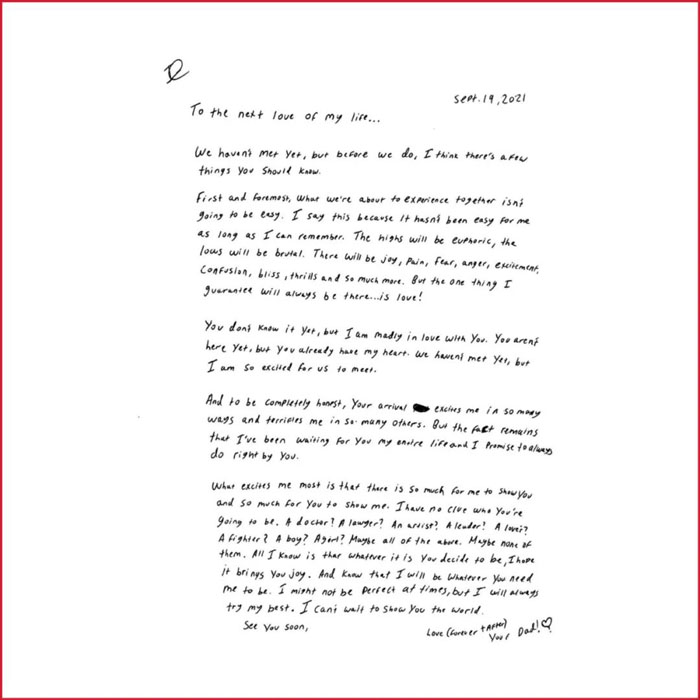 Sept. 19, 2021
To the next love of my life...
We haven't met yet, but before we do, I think there's a few
things you should know.
First and foremost, what we're about to experience together isn't
going to be easy. I say this because it hasn't been easy for me
as long as I can remember. The highs will be euphoric, the
lows will be brutal. There will be joy, pain, fear, anger, excitement,
confusion, bliss, thrills and so much more. But the one thing I
guarantee will always be there...is love!
You don't know it yet, but I am madly in love with you. You aren't
here yet, but you already have my heart. We haven't met yet, but
I am so excited for us to meet.
And to be completely honest, your arrival excites me in so many
ways and terrifies me in so many others. But the fact remains
that I've been waiting for you my entire life and I promise to always
do right by you.
What excites me most is that there is so much for me to show you
and so much for you to show me. I have no clue who you're
going to be. A doctor? A lawyer? An artist? A leader? A lover?
A fighter? A boy? A girl? Maybe all of the above. Maybe none of
them. All I know is that whatever it is you decide to be, I hope
it brings you joy. And know that I will be whatever you need
me to be. I might not be perfect at times, but I will always
try my best. I can't wait to show you the world.
See you soon,
Love (Forever + After)
Your Dad!